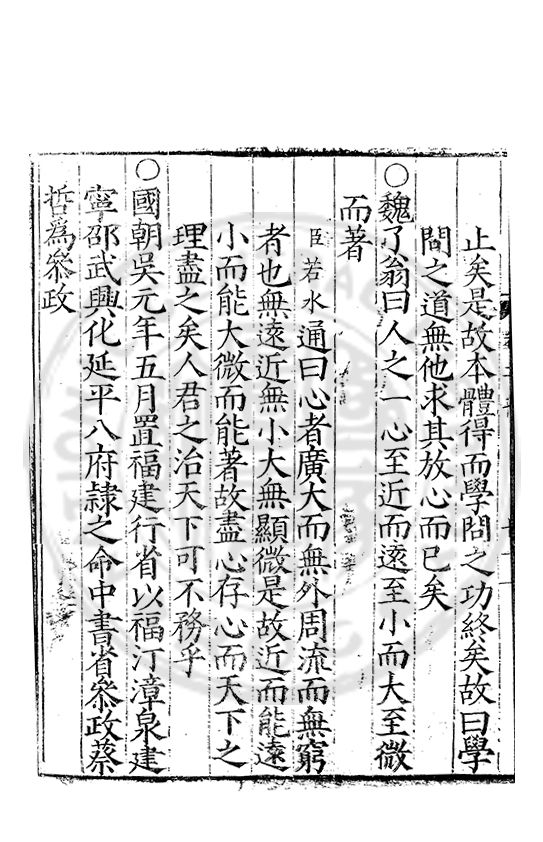 止矣是故本體得而學問之功終矣故曰學
問之道無他求其放心而已矣
○魏了翁曰人之一心至近而遠至小而大至微
而著
臣若水通曰心者廣大而無外周流而無窮
者也無遠近無小大無顯微是故近而能遠
小而能大微而能著故盡心存心而天下之
理盡之矣人君之治天下可不務乎
○國朝吳元年五月置福建行省以福汀漳泉建
寧邵武興化延平八府隷之命中書省叅政蔡
哲爲叅政